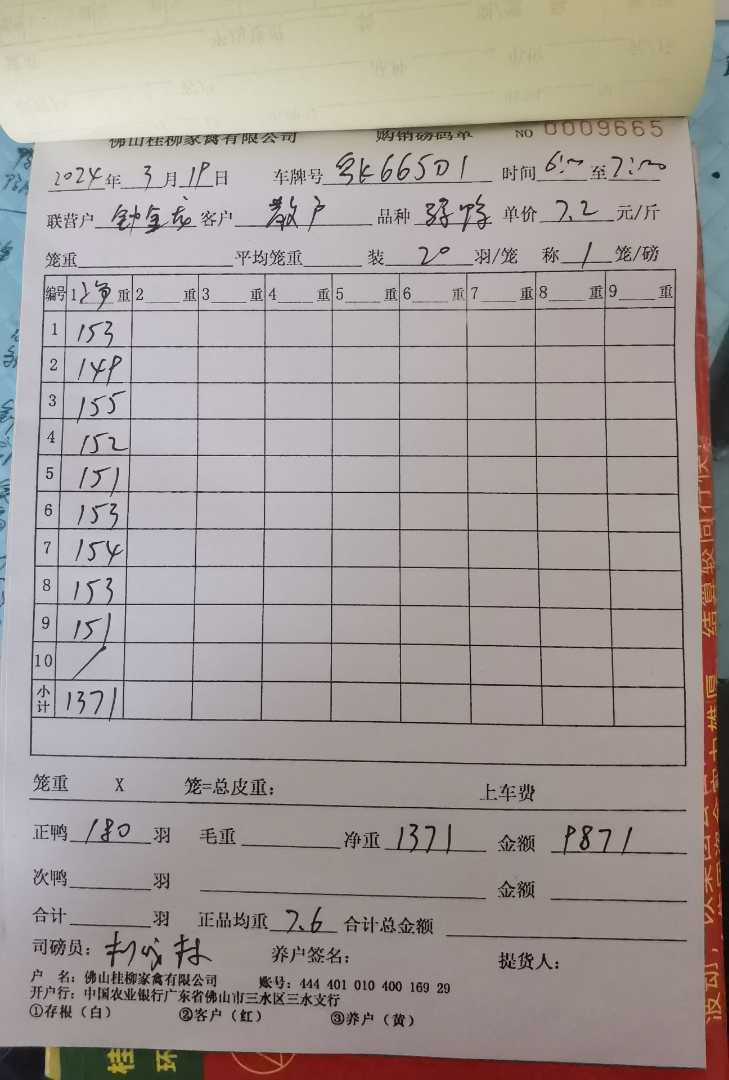 佛山桂柳家禽有限公司 购销磅码单 NO 0009665
2024年 3月 19日 车牌号 粤K66501 时间 6:00 至 7:00
联营户 钟金龙 客户 散户 品种 单价 7.2 元/斤
笼重 平均笼重 装 20 羽/笼 称 1 笼/磅
编号 1 净 重 2 重 3 重 4 重 5 重 6 重 7 重 8 重 9 重
1 153
2 149
3 155
4 152
5 151
6 153
7 154
8 153
9 151
10 /
小计 1371
笼重 X 笼=总皮重: 上车费
正鸭 180 羽 毛重 净重 1371 金额 9871
次鸭 羽 金额
合计 羽 正品均重 7.6 合计总金额
司磅员: 养户签名: 提货人:
户 名: 佛山桂柳家禽有限公司 账号: 444 401 010 400 169 29
开户行: 中国农业银行广东省佛山市三水区三水支行
①存根(白) ②客户(红) ③养户(黄)